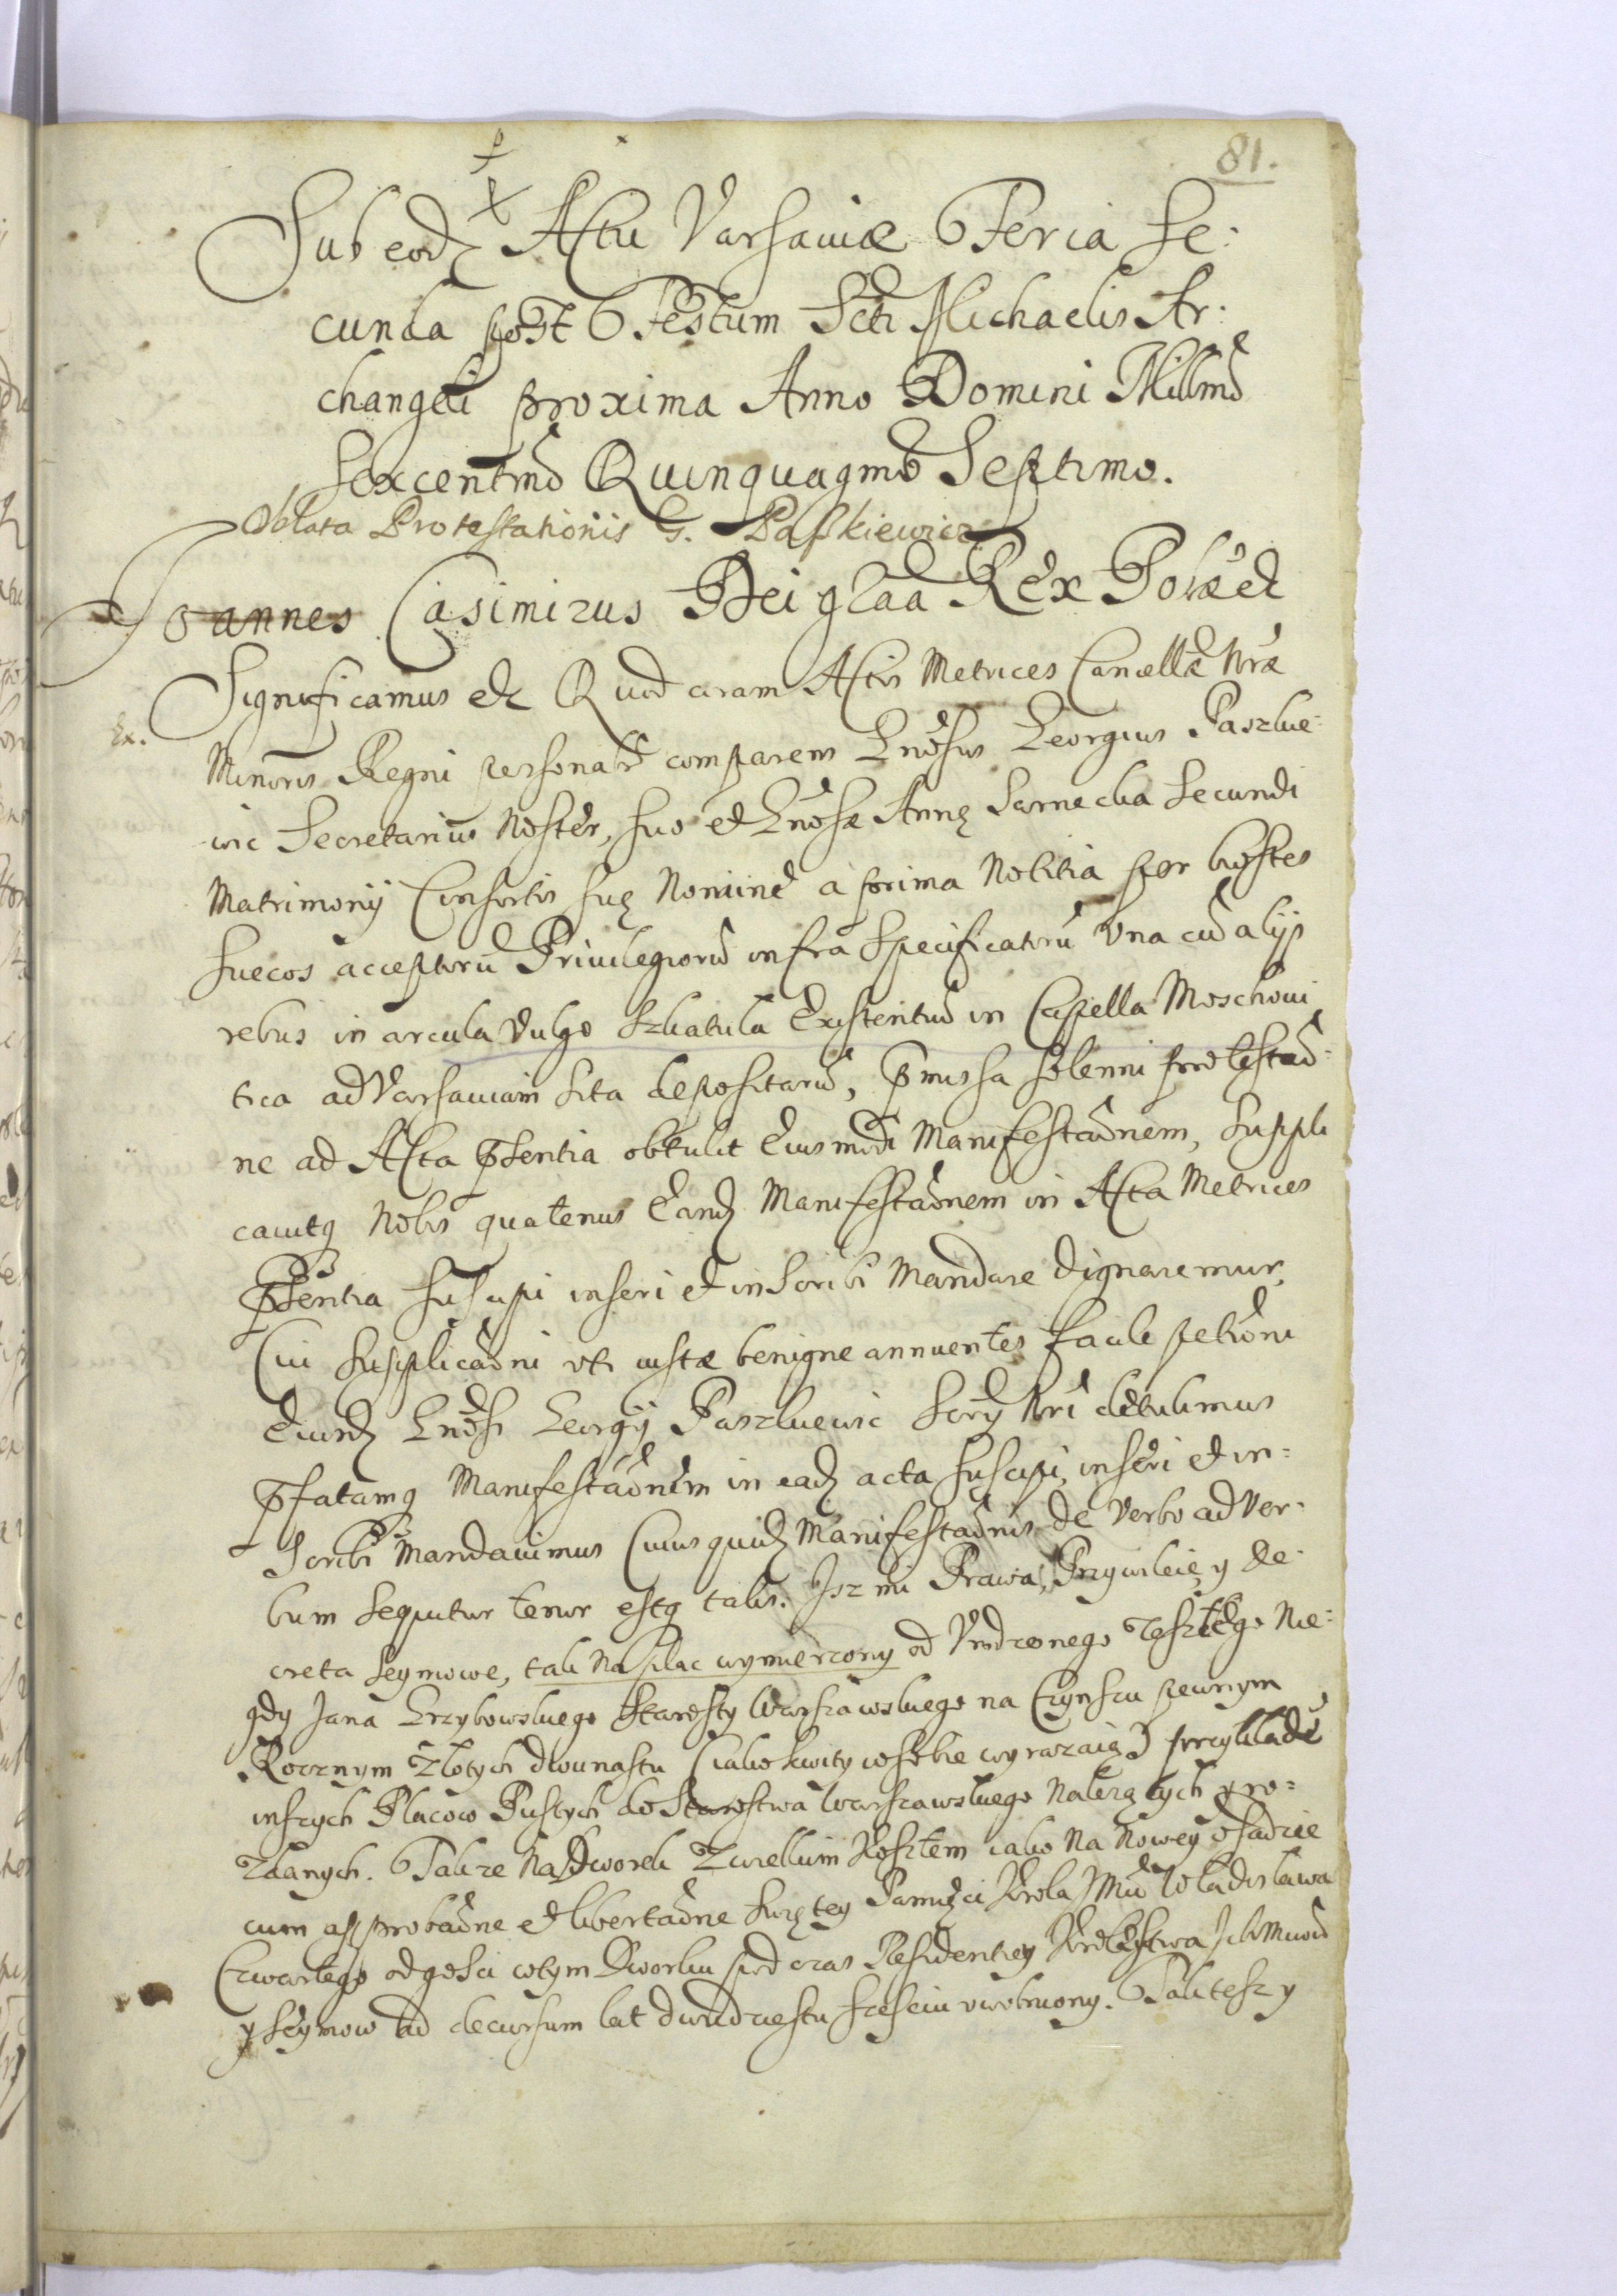 81.
Sub eod Actu Varsaviæ Feria Se:
cunda post Festum Scti Michaelis Ar:
changeli proxima Anno Domini Millmo
Sexcentmo Quinquagmo Septimo.
Oblata Protestationis G. Paskiewicz
Joannes Casimirus Dei graa Rex Polæ et
Significamus etc Quod coram Actis Metrices Cancellæ Nræ
Ex.
Minoris Regni personalr comparens Gnosus Georgius Paszkie-
wic Secretarius Noster, suo et Gnosæ Annę Sarnecka Secundi
Matrimonij Consortis suę Nomine a prima Notitia per hostes
Suecos acceptoru Privilegioru infra Specificatoru una cu alijs
rebus in arcula vulgo Szkatula Existentiu in Capella Moschovi
tica ad Varsaviam sita depositaru, pmissa solenni protestao-
ne ad Acta pSentia obtulit Eiusmodi Manifestaonem, Suppli
cavitq Nobis quatenus Eand Manifestaonem in Acta Metrices
pSentia suscipi inseri et inscribi Mandare dignaremur,
Cui supplicaoni uti iustæ benigne annuentes facile petioni
Eiusd Gnosi Georgij Paszkiewic Scrij Nri detulimus
pfatamq Manifestaonem in ead acta suscipi, inseri et in=
scribi Mandavimus Cuius quid Manifestaonis de Verbo ad Ver-
bum sequitur tenor estq talis. Isz mi Prawa, Przywileie, y De-
creta Seymowe, tak na plac wymierzony od Urodzonego zeszłego Nie=
gdy Jana Grzybowskiego Starosty Warszawskiego na Czynszu pewnym
Rocznym Złotych dwunastu (iako kwity w sobie wyrazaią) przykłade
inszych Placow Pustych do Starostwa Warszawskiego nalezących y ro=
zdanych. Takze na Dworek zwielkim Kosztem iako na Nowey osadzie
cum approbaone et libertaone Swiętey Pamięci Krola JMci Władisława
Czwartego od gosci w tym Dworku pod czas Residentiey Krolestwa Ich Mciow
y Seymow ad decursum lat dwudziestu szesciu uwolniony. Tak tesz y